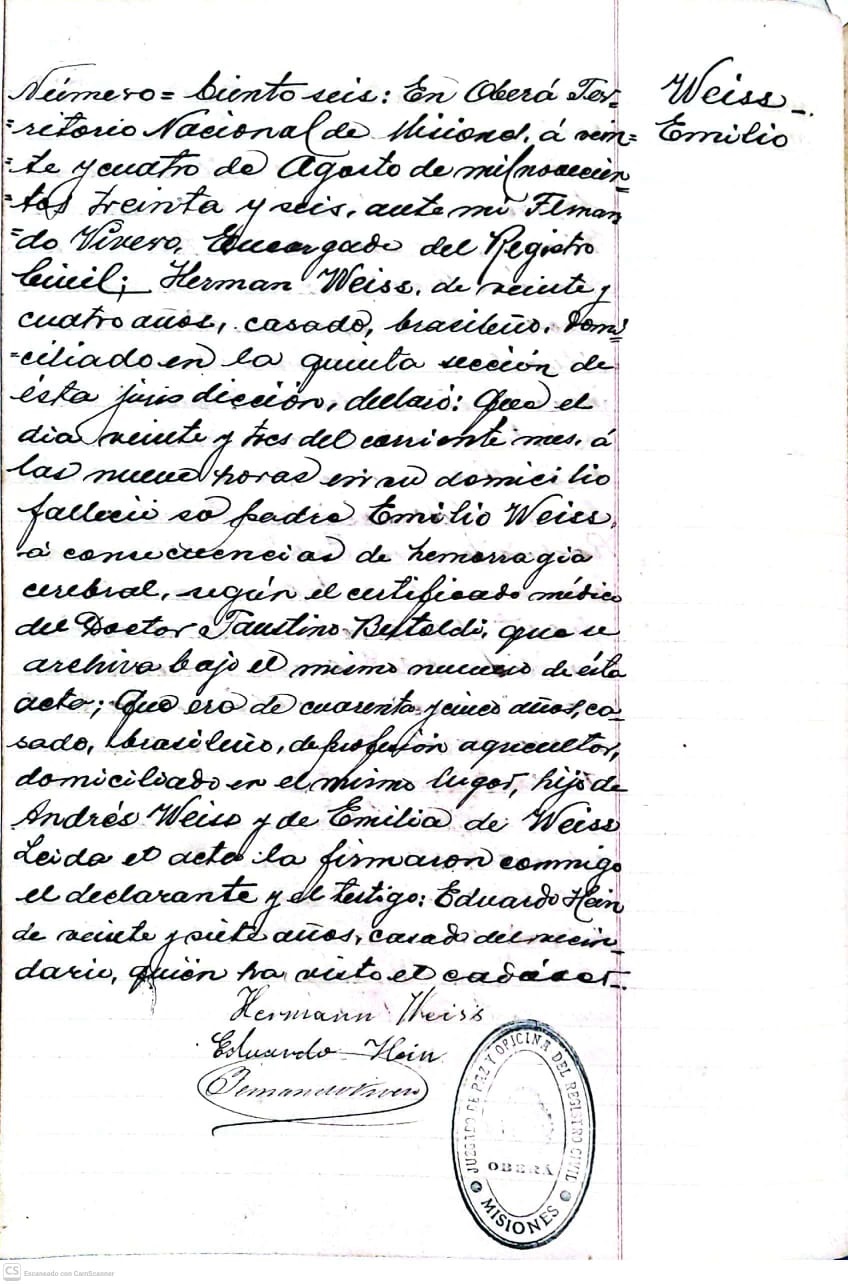 Número= Ciento seis: En Oberá Ter-
=ritorio Nacional de Misiones, á vein=
=te y cuatro de Agosto de mil novecien-
=tos treinta y seis, ante mi Fernan
=do Vivero, Encargado del Registro
Civil; Herman Weiss, de veinte y
cuatro años, casado, brasileño, domi=
=ciliado en la quinta sección de
ésta jurisdicción, declaró: Que el
dia veinte y tres del corriente mes, á
las nueve horas en su domicilio
falleció su padre Emilio Weiss,
á consecuencias de hemorragia
cerebral, según el certificado médico
del Doctor Faustino Bertoldi, que se
archiva bajo el mismo numero de ésta
acta; Que era de cuarenta y cinco años, ca-
sado, brasileño, de profesión agricultor,
domiciliado en el mismo lugar, hijo de
Andrés Weiss y de Emilia de Weiss
Leida el acta la firmaron conmigo
el declarante y el testigo: Eduardo Hein
de veinte y siete años, casado del vecin-
dario, quién ha visto el cadáver-.
Weiss-.
Emilio
Hermann Weiss
Eduardo Hein
Fernando Vivero
JUZGADO DE PAZ Y OFICINA DEL REGISTRO CIVIL
OBERÁ
MISIONES
CS Escaneado con CamScanner